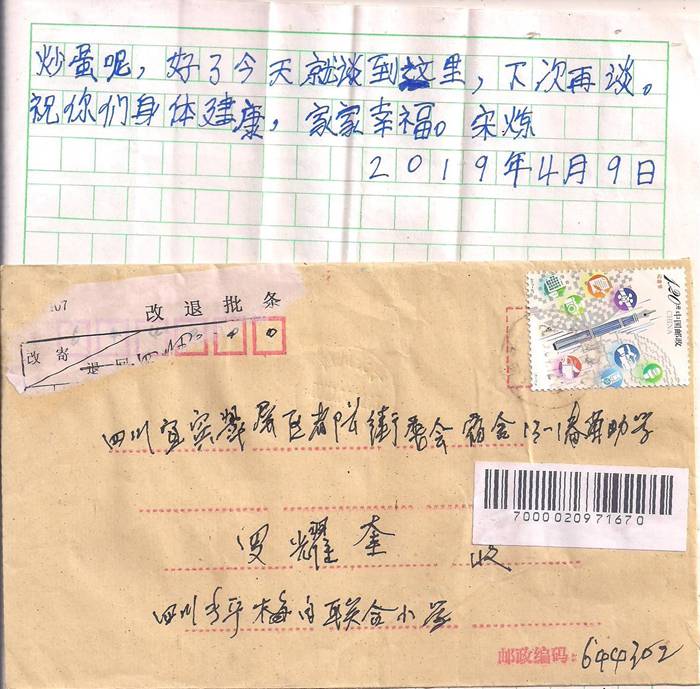 炒蛋呢，好了今天就谈到这里，下次再谈。
祝你们身体建康，家家幸福。宋炼
2019年4月9日
207
改退批条
改寄 退回
1.20元 中国邮政 CHINA
四川宜宾翠屏区都长街委会宿舍13-1潘苹助学
7000020971670
罗耀奎 收
四川 梅白联合小学
邮政编码：644302